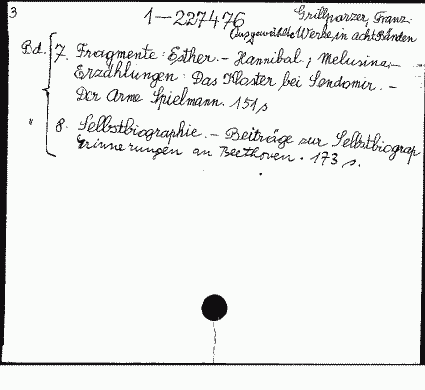 3
1-227476
Grillparzer, Franz.
Ausgewählte Werke, in acht Bänden
Bd. 7. Fragmente: Esther. - Hannibal; Melusina. -
Erzählungen: Das Kloster bei Sendomir. -
Der Arme Spielmann. 151 s
" 8. Selbstbiographie. - Beiträge zur Selbstbiograp
Erinnerungen an Beethoven. 173 s.